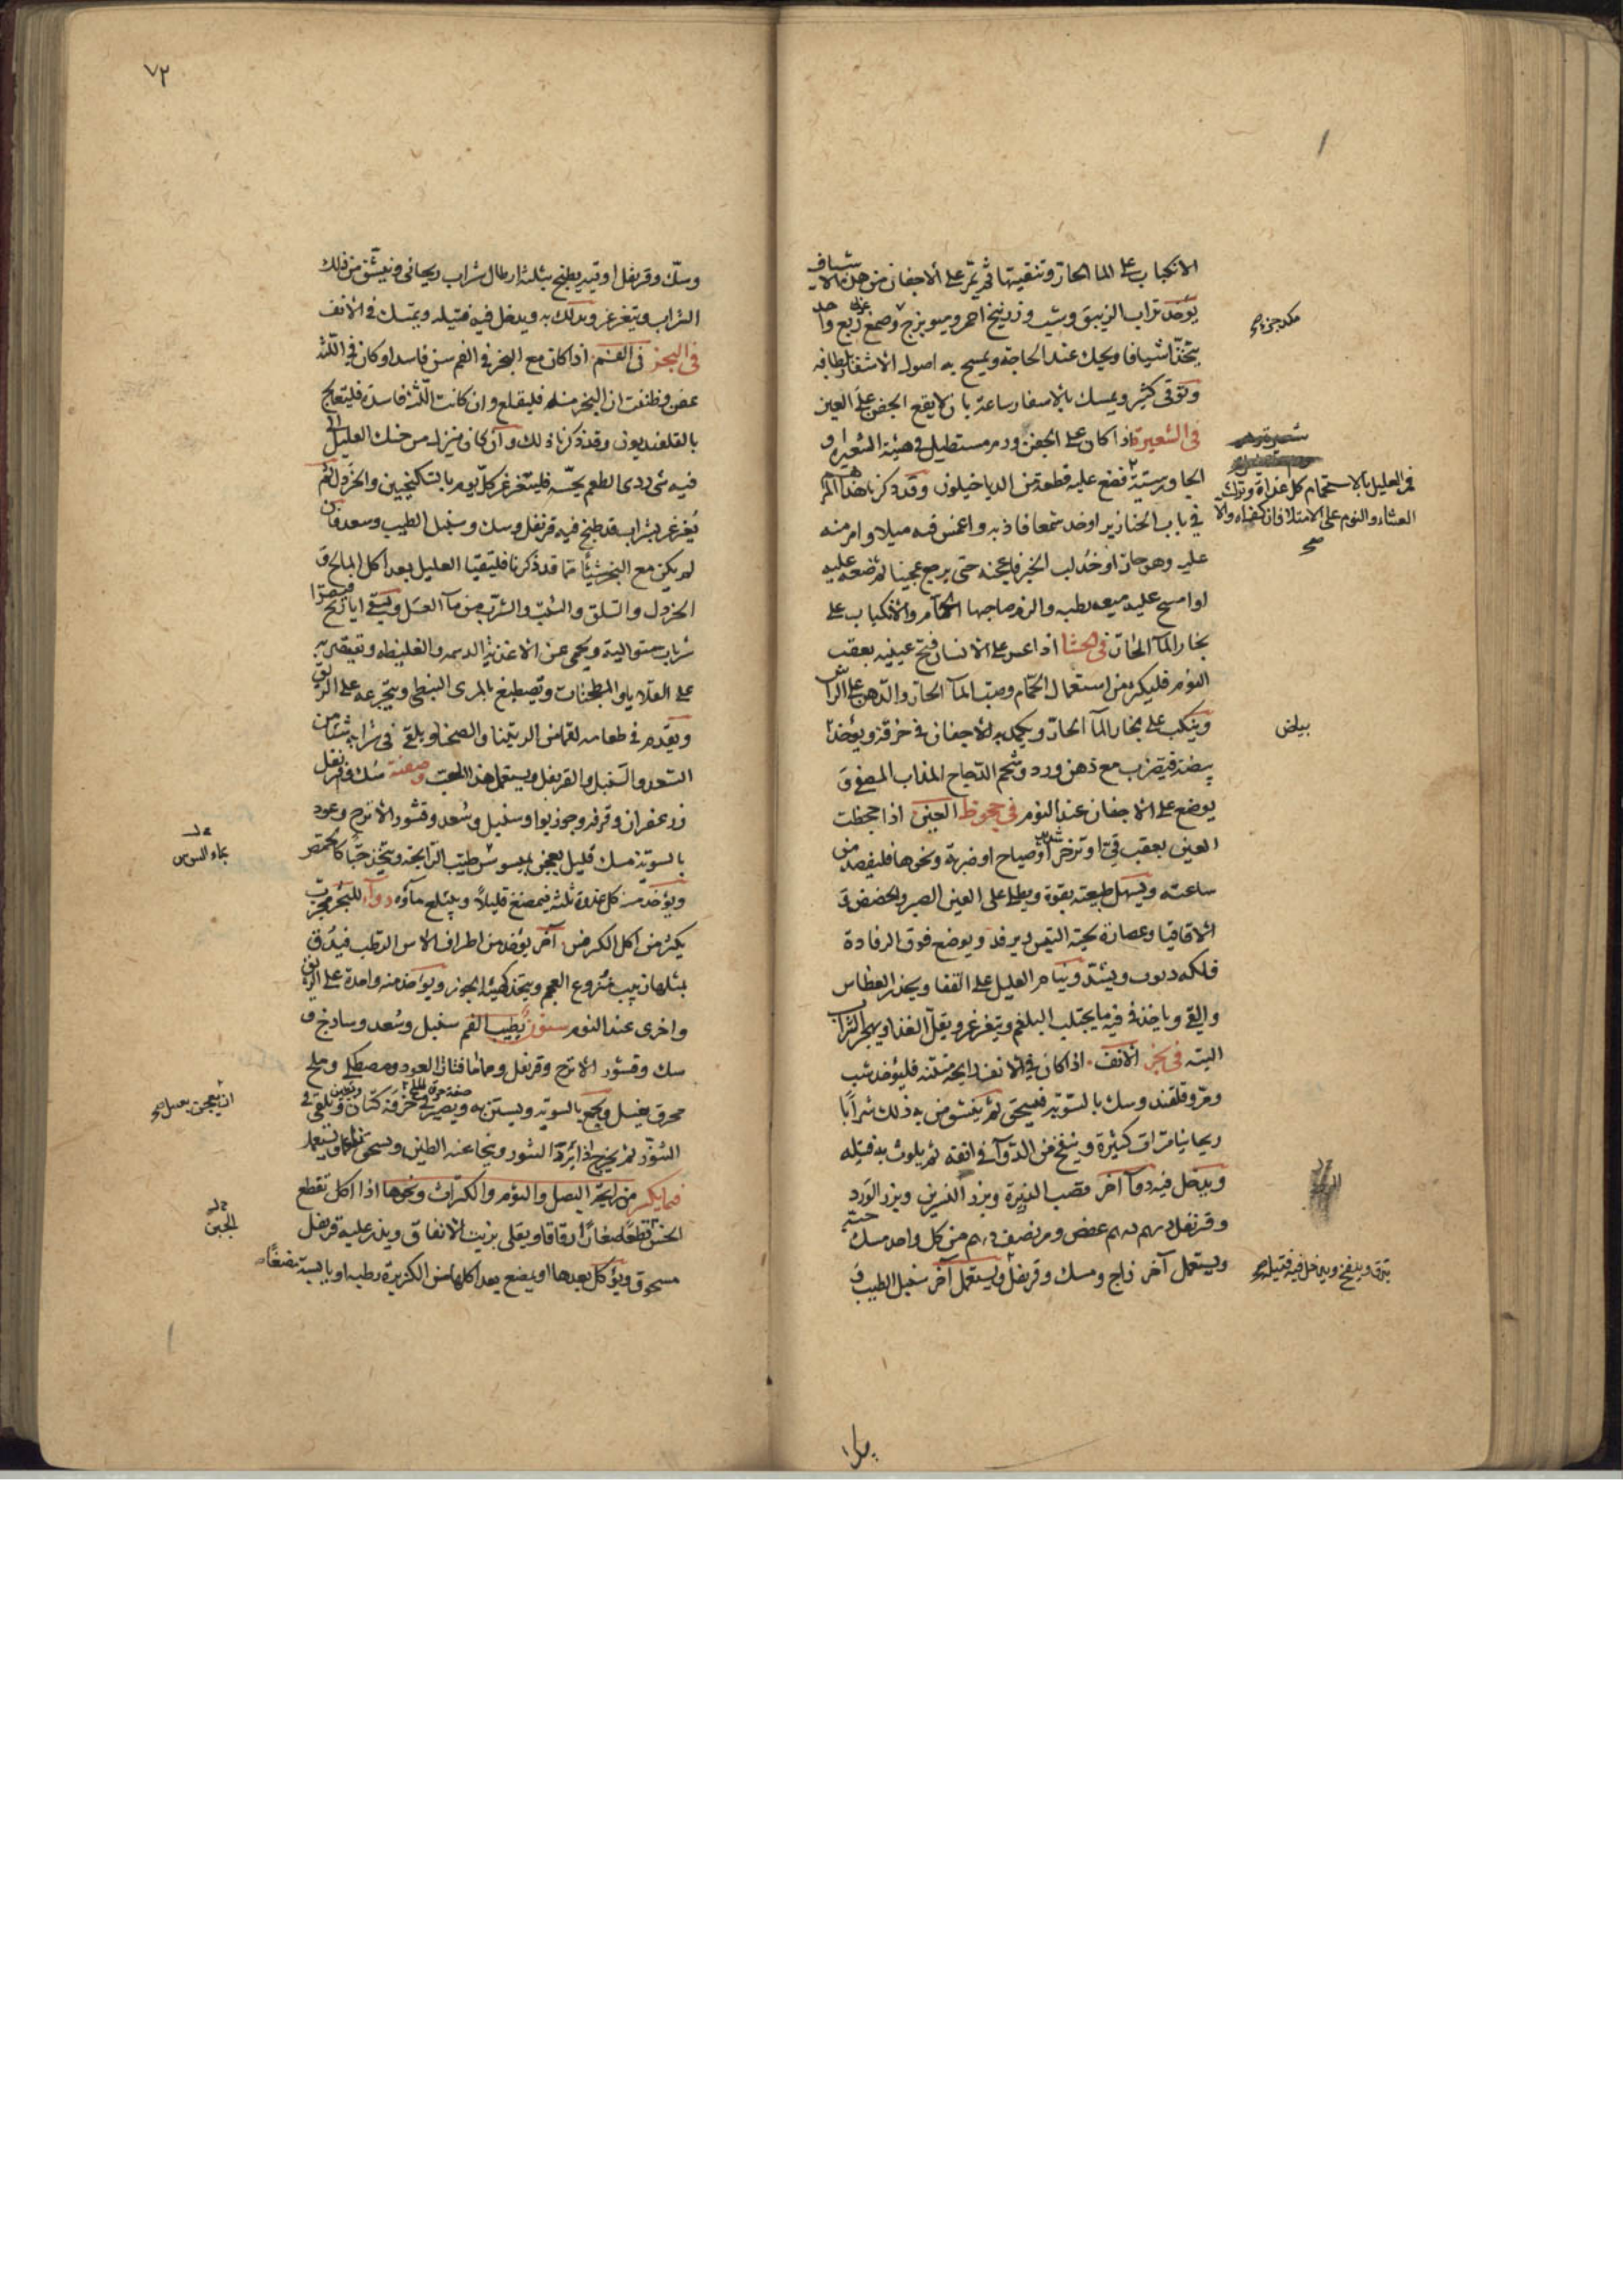 الانكباب على الما الحار وتنقيتها ثم يمر على الاجفان من هذه الاشياف
يؤخذ تراب الزيبق وشب وزرنيخ احمر وميويزج وصمغ عربي ربع واحد
يتخذ اشيافا ويحك عند الحاجة ويمسح به اصول الاشفار بلطافه
وتوقى كثير ويمسك بالاسفار ساعة بان لا يقع الجفن على العين
في الشعيرة اذا كان على الجفن ورم مستطيل في هيئة الشعيرة او
الجاورسية فضع عليه قطعة من الدياخيلون وقد ذكرنا هذا المرهم
في باب الخنازير او خذ شمعا فاذبه واغمس فيه ميلا وامر منه
عليه وهو حار او خذ لب الخبز فاعجنه حتى يرجع عجينا ثم ضعه عليه
او امسح عليه ميعه رطبه والزم صاحبها الحمام والانكباب على
بخار المآ الحار في الجشا اذا عسر على الانسان فتح عينيه بعقب
النوم فليكثر من استعمال الحمام وصب المآ الحار والدهن على الراس
وينكب على بخار المآ الحار ويكمد به الاجفان في خرقة ويؤخذ
بيضة فيضرب مع دهن ورد وشحم الدجاج المذاب المصفى و
يوضع على الاجفان عند النوم في جحوظ العين اذا جحظت
العين بعقب قئ او تزحر شديد او صياح او ضربة ونحوها فليفصد من
ساعته ويسهل طبيعته بقوة ويطلى على العين الصبر والحضض و
الاقاقيا وعصارة لحية التيس ثم يرفد ويوضع فوق الرفادة
فلكه ويشد وينام العليل على القفا ويحذر العطاس
والقئ وياخذ في فيه ما يجتلب البلغم ويتغرغر ويقلل الغذا ويهجر الشراب
البته في بخر الانف اذا كان في الانف رايحة منتنه فليؤخذ شب
ومر وقلقند وسك بالسوية فيسحق ثم يتنشق من به ذلك شرابا
ريحانيا مرات كثيرة وينفخ من الدوآ في انفه ثم يلوث به فتيله
ويدخل فيه دوآ آخر قصب الذريرة وبزر النسرين وبزر الورد
وقرنفل درهم درهم عفص ومر نصف درهم من كل واحد مسك حبة
ويستعمل آخر زاج ومسك وقرنفل ويستعمل آخر سنبل الطيب و
فمر العليل بالاستحمام كل غداة وترك
العشاء والنوم على الامتلا فان كفاه والا
صح
بياض
يدق وينفخ ويدخل فيه فتيله صح
٧٢
وسك وقرنفل اوقيه يطبخ بثلثه ارطال شراب ريحاني ويتنشق من ذلك
الشراب ويتغرغر ويدلك به ويدخل فيه فتيله ويمسك في الانف
في البخر في الفم اذا كان مع البخر في الفم سن فاسد او كان في اللثه
عفن وظننت ان البخر منه فليقلع وان كانت اللثه فاسدة فليتعالج
بالقلفنديون وقد ذكرنا ذلك وان كان ينزل من حنك العليل الى
فيه شئ ردى الطعم يحسه فليتغرغر كل يوم بالسكنجبين والخردل ثم
يغرغر بشراب قد طبخ فيه قرنفل وسك وسنبل الطيب وسعد وان
لم يكن مع البخر شيئا مما قد ذكرنا فليتقيا العليل بعد اكل المالح و
الخردل والسلق والشبث والشرب من مآ العسل ويسقى ايارج فيقرا
شربات متواليه ويحمى عن الاغذية الدسمه والغليظه ويقتصر به
على القلايا والمطجنات ويصطبغ بالمرى النبطى ويتجرعه على الريق
ويقدم في طعامه لقما من الربيثا والصحنا ويلقى في شرابه شئ من
السعد والسنبل والقرنفل ويستعمل هذا الحب وصفته سك وقرنفل
وزعفران وقرفه وجوز بوا وسنبل وسعد وقشور الاترج وعود
بالسوية مسك قليل يعجن بميسوسن طيب الرايحه ويتخذ حبا كالحمص
ويؤخذ منه كل غداة ثلثه فيمضغ قليلا ويبتلع مآؤه دوآ للبخر مجرب
يكثر من اكل الكرفس آخر يؤخذ من اطراف الاس الرطب فيدق
بمثلها زبيب منزوع العجم ويتخذ كهيئة الجوز ويؤخذ منه واحدة على الريق
واخرى عند النوم سنون يطيب الفم سنبل وسعد وساذج و
سك وقشور الاترج وقرنفل وحماما وفتات العود ومصطكى وملح
محرق بعسل ويجمع بالسوية ويستن به ويصير في خرقة كتان ويلقى في
التنور ثم يخرج اذا برد التنور وينحا عنه الطين ويسحق ناعما ويستعمل
فيما يكسر من رايحة البصل والثوم والكراث ونحوها اذا اكل تقطع
الجبن قطعا صغارا رقاقا ويقلى بزيت الانفاق ويذر عليه قرنفل
مسحوق ويؤكل بعدها او يمضغ بعد اكلها من الكزبرة رطبه او يابسة مضغا
بماء السوس
ان يعجن بعسل صح
الجبن